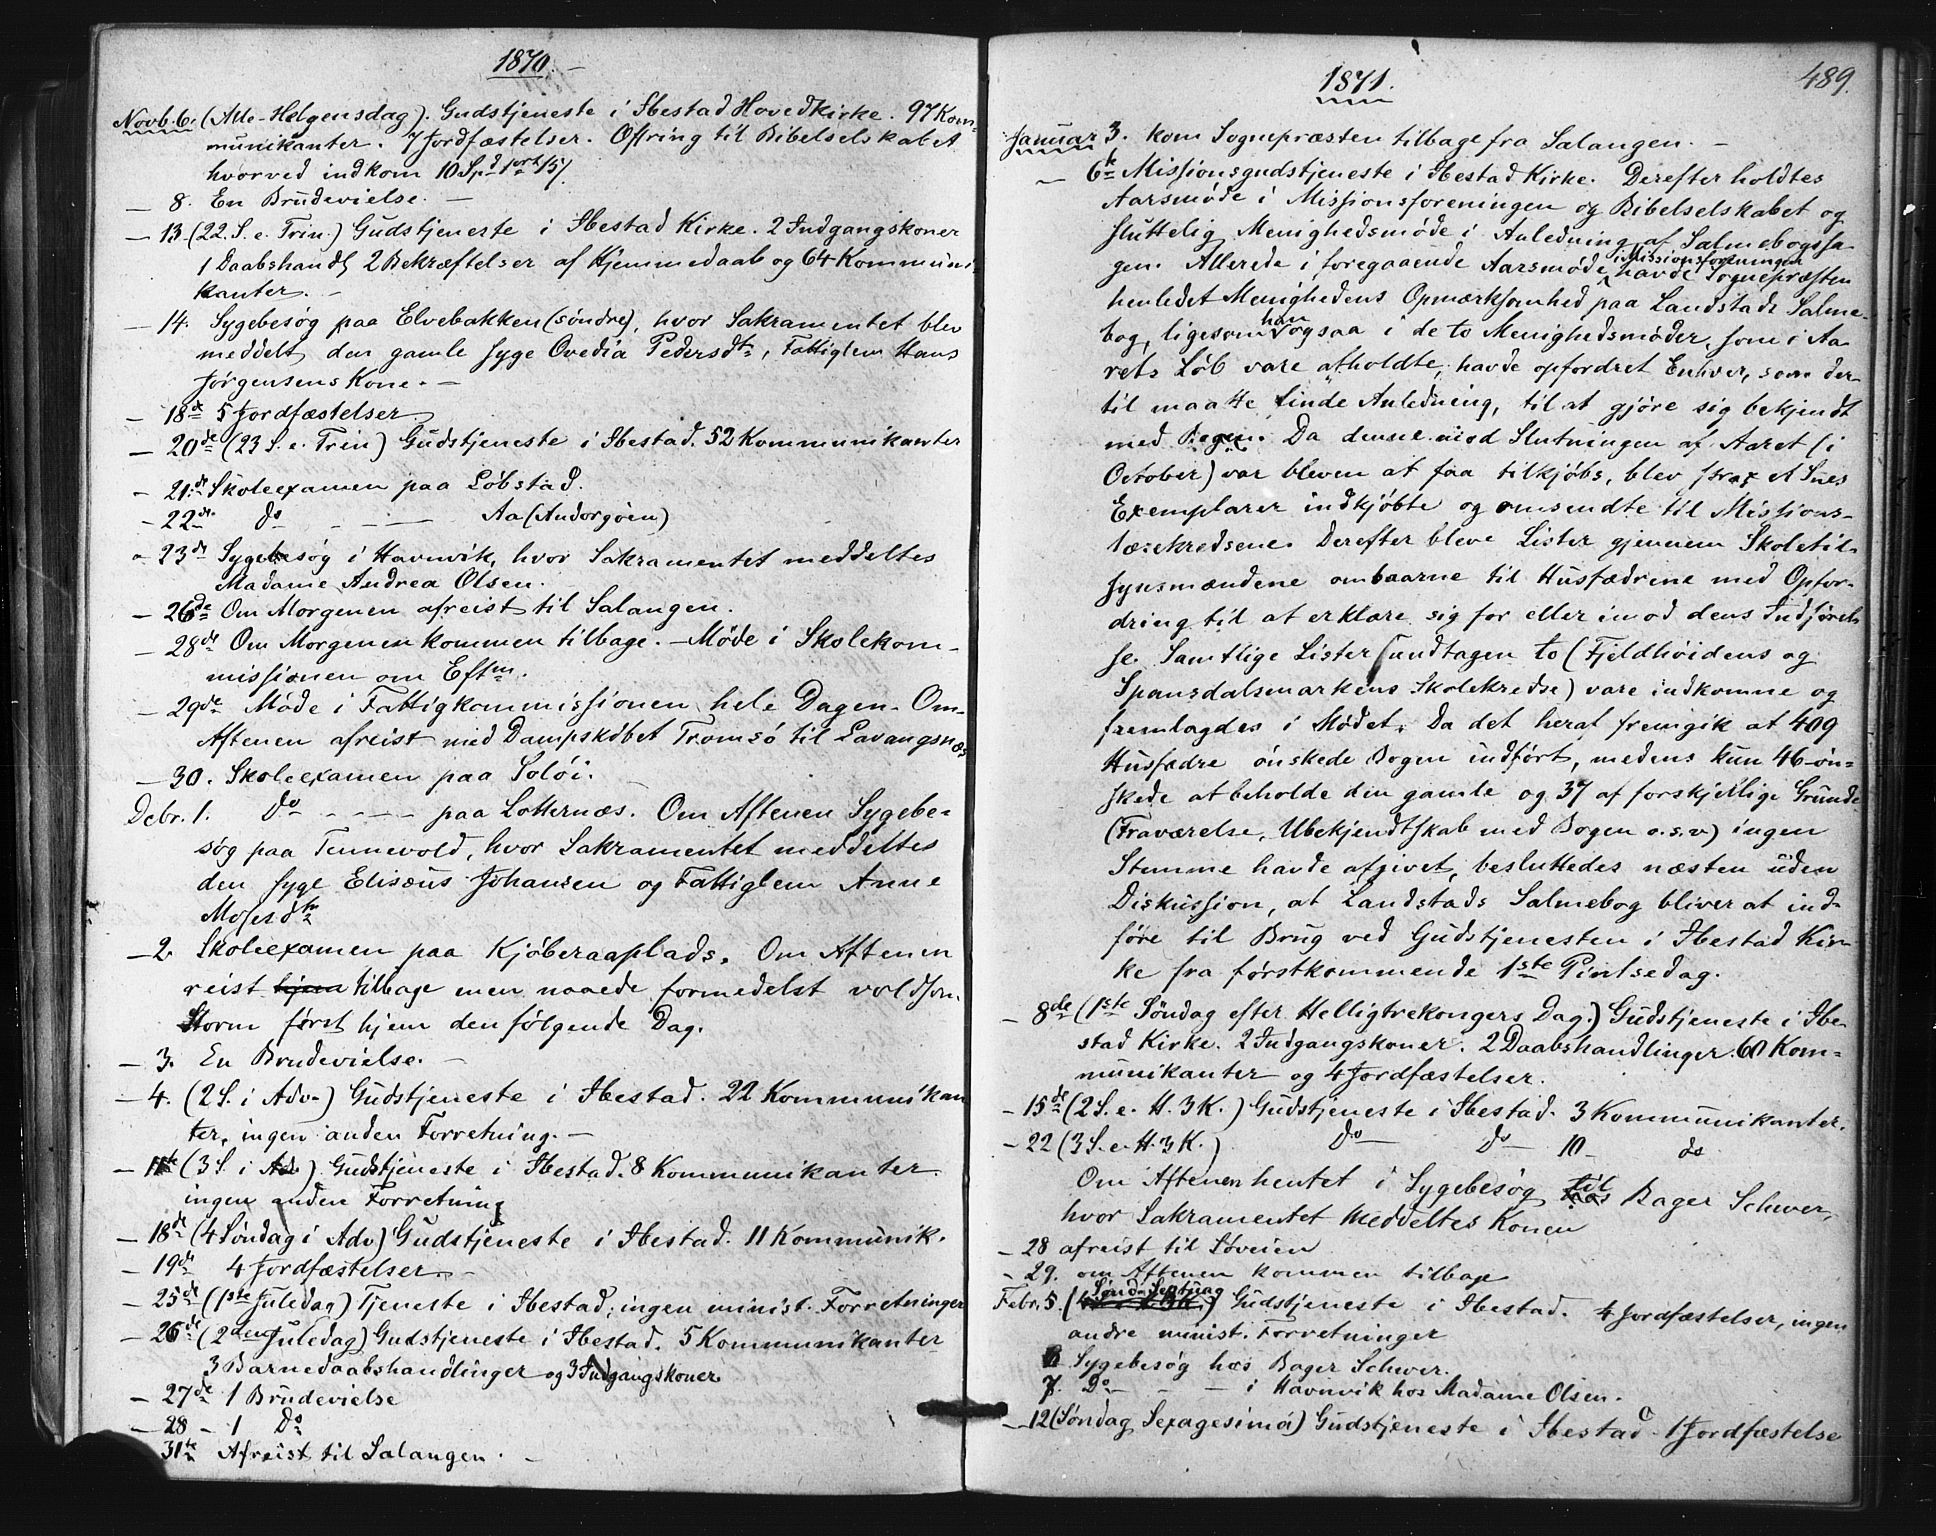 1870. —
Novb. 6. (Alle-Helgensdag). Gudstjeneste i Ibestad Hovedkirke. 97 Kom-
munikanter. 7 Jordfæstelser. Offring til Bibelselskabet
hvorved indkom 10 Spd 1 ort 15/
— 8. En Brudevielse. —
— 13. (22. S. e. Trin.) Gudstjeneste i Ibestad Kirke. 2 Indgangskoner
1 Daabshandl 2 Bekræftelser af Hjemmedaab og 64 Kommuni
kanter. —
— 14. Sygebesøg paa Elvebakken (søndre), hvor Sakramentet blev
meddelt den gamle syge Ovedia Pedersdtr, Fattiglem Hans
Jørgensens Kone. —
— 18de 5 Jordfæstelser
— 20de (23 S. e. Trin) Gudstjeneste i Ibestad. 52 Kommunikanter
— 21de Skoleexamen paa Løbstad.
— 22de do — — — Aa (Andorgøen)
— 23de Sygebesøg i Havnvik, hvor Sakramentet meddeltes
Madame Andrea Olsen.
— 26de Om Morgenen afreist til Salangen.
— 28de Om Morgenen kommen tilbage. — Møde i Skolekom-
missionen om Eftm.
— 29de Møde i Fattigkommissionen hele Dagen. Om
Aftenen afreist med Dampskibet Tromsø til Lavangsnæs
— 30. Skoleexamen paa Soløi.
Debr. 1. Do - - - - paa Lotternæs. Om Aftenen Sygebe-
søg paa Tennevold, hvor Sakramentet meddeltes
den syge Elisæus Johansen og Fattiglem Anne
Mosesdtr
— 2. Skoleexamen paa Kjøberaaplads. Om Aftenen
reist hjem tilbage men naaede formedelst voldsom
Storm først hjem den følgende Dag.
— 3. En Brudevielse. —
— 4. (2 S. i Adv.) Gudstjeneste i Ibestad. 22 Kommunikan
ter, ingen anden Forretning. —
— 11te (3 S. i Adv) Gudstjeneste i Ibestad. 8 Kommunikanter.
ingen anden Forretning
— 18de (4 Søndag i Adv) Gudstjeneste i Ibestad. 11 Kommunik.
— 19de 4 Jordfæstelser. —
— 25de (1ste Juledag) Tjeneste i Ibestad; ingen minist. Forretninger
— 26de (2den Juledag) Gudstjeneste i Ibestad. 5 Kommunikanter
3 Barnedaabshandlinger og 3 Indgangskoner
— 27de 1 Brudevielse
— 28 - 1 Do
31te Afreist til Salangen. —
489.
1871.
Januar 3. kom Sognepræsten tilbage fra Salangen. —
— 6te Missionsgudstjeneste i Ibestad Kirke. Derefter holdtes
Aarsmøde i Missionsforeningen og Bibelselskabet og
sluttelig Menighedsmøde i Anledning af Salmebogssa-
gen. Allerede i foregaaende Aarsmøde i Missionsforeningen havde Sognepræsten
henledet Menighedens Opmærksomhed paa Landstads Salme-
bog, ligesom han ogsaa i de to Menighedsmøder, som i Aa-
rets Løb vare afholdte, havde opfordret Enhver, som der-
til maatte finde Anledning, til at gjøre sig bekjendt
med Bogen. Da denne mod Slutningen af Aaret (i
October) var bleven at faa tilkjøbs, blev strax
Exemplarer indkjøbte og omsendte til Missions-
læsekredsene. Derefter bleve Lister gjennem Skoletil-
synsmændene ombaarne til Husfædrene med Opfor-
dring til at erklære sig for eller imod dens Indførel-
se. Samtlige Lister undtagen to (Fjeldhøidens og
Spansdalsmarkens Skolekredse) vare indkomne og
fremlagdes i Mødet. Da det heraf fremgik at 409
Husfædre ønskede Bogen indført, medens kun 46 øn-
skede at beholde den gamle og 37 af forskjellige Grunde
(Fraværelse, Ubekjendtskab med Bogen o.s.v) ingen
Stemme havde afgivet, besluttedes næsten uden
Diskussion, at Landstads Salmebog bliver at ind-
føre til Brug ved Gudstjenesten i Ibestad Kir-
ke fra førstkommende 1ste Pintsedag.
— 8de (1ste Søndag efter Helligtrekongers Dag.) Gudstjeneste i Ibe-
stad Kirke. 2 Indgangskoner. 2 Daabshandlinger. 60 Kom-
munikanter og 4 Jordfæstelser.
— 15de (2 S. e. H. 3 K.) Gudstjeneste i Ibestad. 3 Kommunikanter.
— 22 (3 S. e. H. 3 K.) Do — Do — 10 — do
Om Aftenen hentet i Sygebesøg til Bager Schwer,
hvor Sakramentet meddeltes Konen
— 28 afreist til Løveien
— 29. om Aftenen kommen tilbage
Febr. 5. (Sønd. Septuag) Gudstjeneste i Ibestad. 4 Jordfæstelser, ingen
andre minist. Forretninger
6 Sygebesøg hos Bager Schwer.
7. Do — - — i Havnvik hos Madame Olsen.
— 12 (Søndag Sexagesima) Gudstjeneste i Ibestad 1 Jordfæstelse